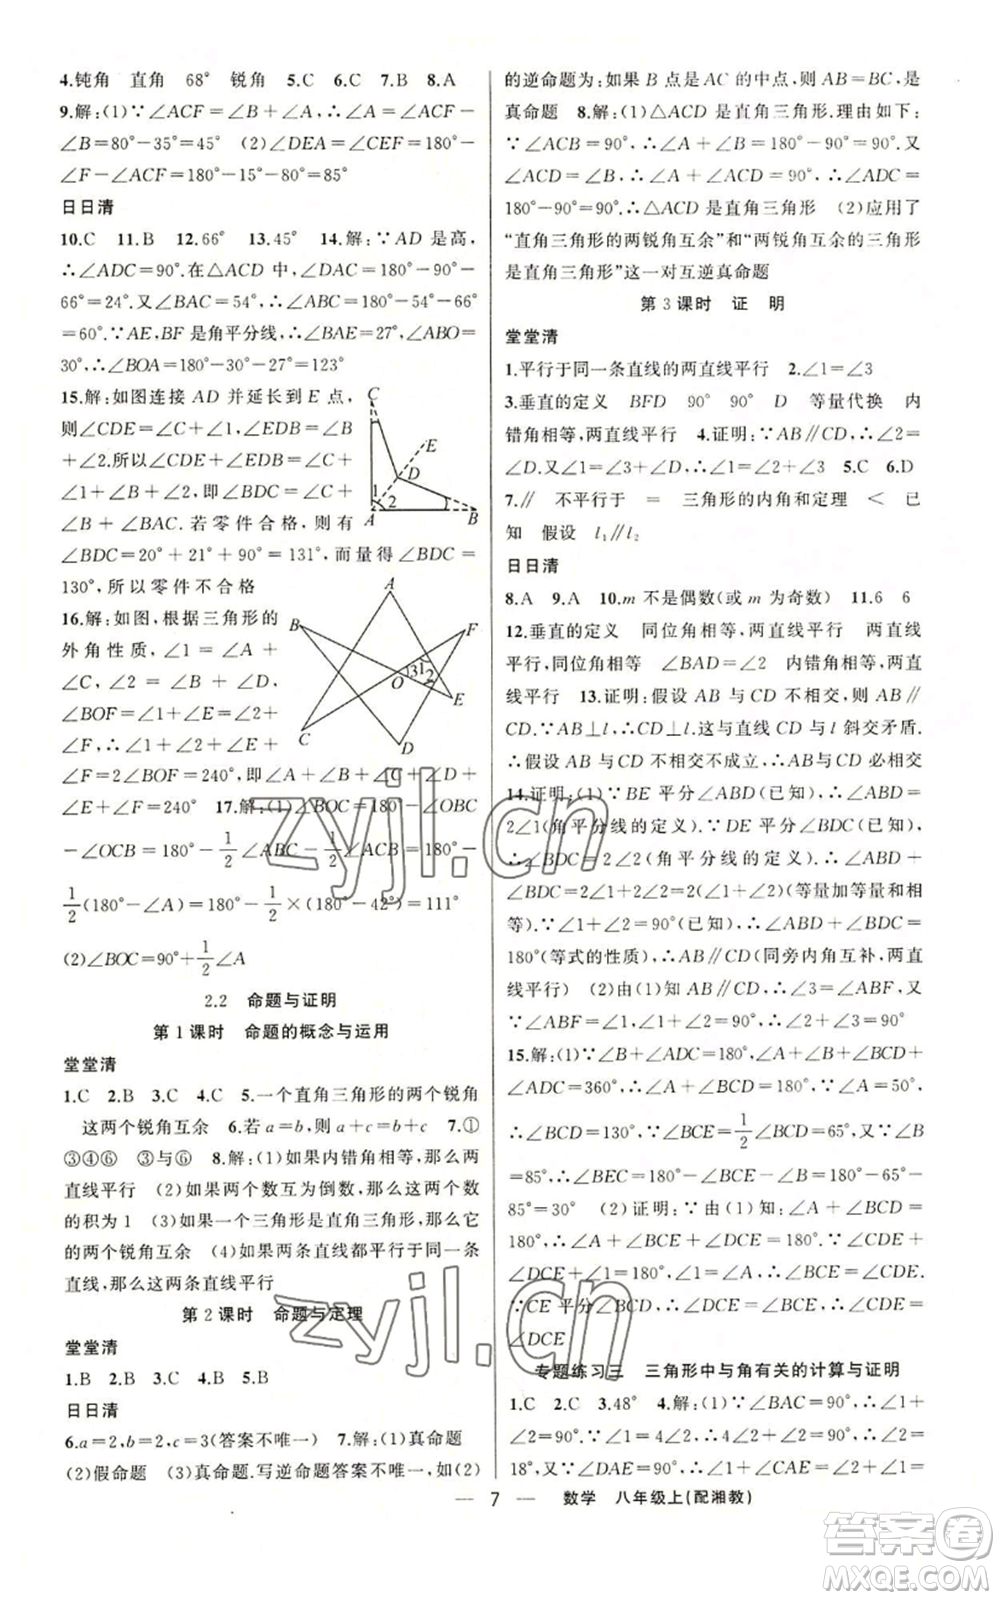 4.钝角　直角　68°　锐角　5.C　6.C　7.B　8.A
9.解:(1)∵∠ACF=∠B+∠A,∴∠ACF-
∠B=80°-35°=45°　(2)∠DEA=∠CEF=180°-
∠F-∠ACF=180°-15°-80°=85°
日日清
10.C　11.B　12.66°　13.45°　14.解:∵AD是高,
∴∠ADC=90°.在△ACD中,∠DAC=180°-90°-
66°=24°.又∠BAC=54°,∴∠ABC=180°-54°-66°
=60°.∵AE,BF是角平分线,∴∠BAE=27°,∠ABO=
30°,∴∠BOA=180°-30°-27°=123°
15.解:如图连接AD并延长到E点,
则∠CDE=∠C+∠1,∠EDB=∠B+
∠2.所以∠CDE+∠EDB=∠C+∠1
+∠B+∠2,即∠BDC=∠C+∠B
+∠BAC.若零件合格,则有
∠BDC=20°+21°+90°=131°,而量得∠BDC=
130°,所以零件不合格
C
E
D
1
2
A
B
16.解:如图,根据三角形的
外角性质,∠1=∠A+∠C,
∠2=∠B+∠D.∵∠BOF=120°,
∴∠3=180°-120°=60°,
∠BOF=∠1+∠E,∠BOF=∠2+
∠F,∴∠1+∠E=∠2+∠F=120°,∴∠1+∠E+∠F+∠
2=2∠BOF=240°,即∠A+∠B+∠C+∠D+
∠E+∠F=240°　17.解:(1)∠BOC=180°-∠OBC
-∠OCB=180°-1/2∠ABC-1/2∠ACB=180°-
1/2(180°-∠A)=180°-1/2×(180°-42°)=111°
(2)∠BOC=90°+1/2∠A
A
B
F
O
3
1
2
E
C
D
2.2　命题与证明
第1课时　命题的概念与运用
堂堂清
1.C　2.B　3.C　4.C　5.一个直角三角形的两个锐角
这两个锐角互余　6.若a=b,则a+c=b+c　7.①
③④⑥　③与⑥　8.解:(1)如果内错角相等,那么两
直线平行　(2)如果两个数互为倒数,那么这两个数
的积为1　(3)如果一个三角形是直角三角形,那么它
的两个锐角互余　(4)如果两条直线都平行于同一条
直线,那么这两条直线平行
第2课时　命题与定理
堂堂清
1.B　2.B　3.C　4.B　5.B
日日清
6.a=2,b=2,c=3(答案不唯一)　7.解:(1)真命题
(2)假命题　(3)真命题.写逆命题答案不唯一,如(2)
的逆命题为:如果B点是AC的中点,则AB=BC,是
真命题　8.解:(1)△ACD是直角三角形.理由如下:
∵∠ACB=90°,∴∠A+∠B=180°-90°=90°.又
∠ACD=∠B,∴∠A+∠ACD=90°,∴∠ADC=
180°-90°=90°,∴△ACD是直角三角形　(2)应用了
“直角三角形的两锐角互余”和“两锐角互余的三角形
是直角三角形”这一对互逆真命题
第3课时　证　明
堂堂清
1.平行于同一条直线的两直线平行　2.∠1=∠3
3.垂直的定义　BFD　90°　90°　D　等量代换　内
错角相等,两直线平行　4.证明:∵AB∥CD,∴∠2=
∠D.又∠1=∠3,∴∠1+∠3=∠2+∠D　5.C　6.D
7.∥　不平行于　=　三角形的内角和定理　<　已
知　假设　l₁∥l₂
日日清
8.A　9.A　10.m不是偶数(或m为奇数)　11.6　6
12.垂直的定义　同位角相等,两直线平行　两直线
平行,同位角相等　∠BAD=∠2　内错角相等,两直
线平行　13.证明:假设AB与CD不相交,则AB∥
CD.∵AB⊥l,∴CD⊥l.这与直线CD与l斜交矛盾.
∴假设AB与CD不相交不成立,∴AB与CD必相交
14.证明:(1)∵BE平分∠ABD(已知),∴∠ABD=
2∠1(角平分线的定义).∵DE平分∠BDC(已知),
∴∠BDC=2∠2(角平分线的定义).∴∠ABD+
∠BDC=2∠1+2∠2=2(∠1+∠2)(等量加等量和相
等).∵∠1+∠2=90°(已知),∴∠ABD+∠BDC=
180°(等式的性质),∴AB∥CD(同旁内角互补,两直
线平行)　(2)由(1)知,AB∥CD,∴∠3=∠ABF,又
∵∠ABF=∠1,∠1+∠2=90°,∴∠2+∠3=90°
15.解:(1)∵∠B+∠ADC=180°,∠A+∠B+∠BCD+
∠ADC=360°,∴∠A+∠BCD=180°.∵∠A=50°,
∴∠BCD=130°,∴∠BCE=1/2∠BCD=65°,又∵∠B
=85°,∴∠BEC=180°-∠BCE-∠B=180°-65°-
85°=30°　(2)证明:∵由(1)知:∠A+∠BCD=
180°,∴∠A+∠BCE+∠DCE=180°.∵∠CDE+
∠DCE+∠1=180°,∠1=∠A,∴∠BCE=∠CDE.
∵CE平分∠BCD,∴∠BCE=∠DCE,∴∠CDE=
∠DCE
专题练习三　三角形中与角有关的计算与证明
1.C　2.C　3.48°　4.解:(1)∵∠BAC=90°,∴∠1+
∠2=90°.∵∠1=4∠2,∴4∠2+∠2=90°,∴∠2=
18°,又∵∠DAE=90°,∴∠1+∠CAE=∠2+∠1=
7　数学　八年级上(配湘教)
zyjl.cn
zyjl.cn
答案圈
MXQE.COM